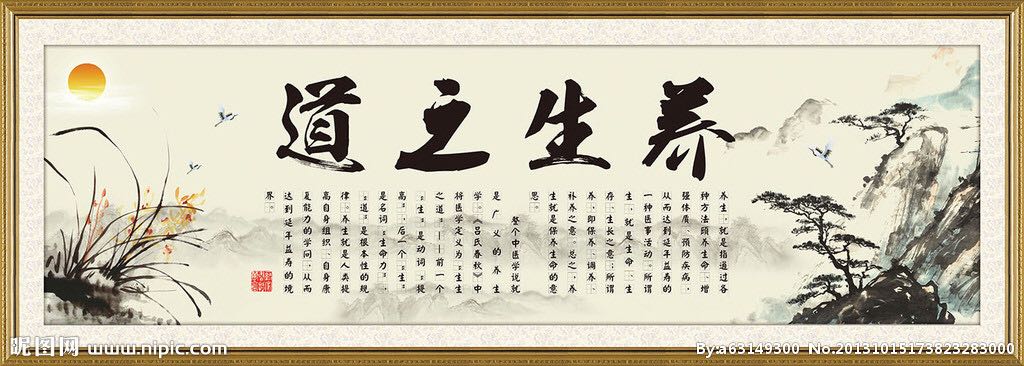 养生之道
养生,就是指通过各
种方法颐养生命、增
强体质、预防疾病,
从而达到延年益寿的
一种医事活动。所谓
生,就是生命、生
存、生长之意;所谓
养,即保养、调养、
补养之意。总之,养
生就是保养生命的意
思。
整个中医学说就
是广义的养生
学。《吕氏春秋》中
将医学定义为“生生
之道”——前一个
“生”是动词,提
高;后一个“生”
是名词,生命力;
“道”是根本性的规
律。养生就是人类提
高自身组织、自身康
复能力的学问,从而
达到延年益寿的境
界。
昵图网 www.nipic.com
By:a63149300 No.20131015173823283000